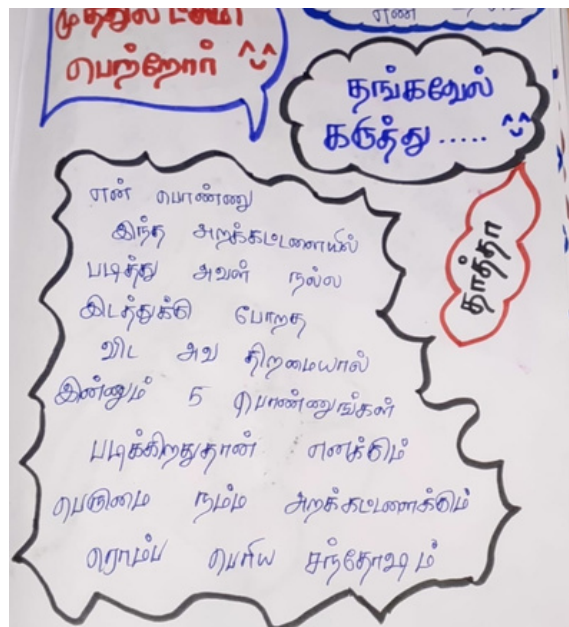 முத்துலட்சுமி
பெற்றோர்
எண்
தங்கவேல்
கருத்து .....
தாத்தா
என் பொண்ணு
இந்த அறக்கட்டளையில்
படித்து அவள் நல்ல
இடத்துக்கு போறத
விட அவ திறமையால்
இன்னும் 5 பொண்ணுங்கள்
படிக்கிறதுதான் எனக்கும்
பெருமை நம்ம அறக்கட்டளைக்கும்
ரொம்ப பெரிய சந்தோஷம்